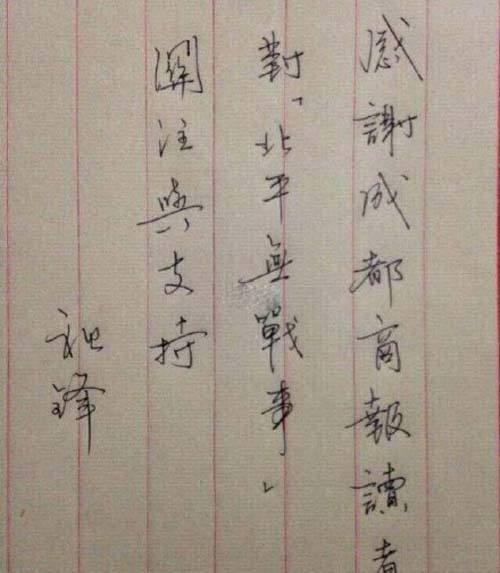 感謝成都商報讀者
對「北平無戰事」
關注與支持
祖鋒